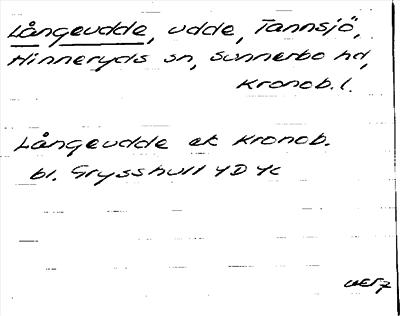 Långeudde, udde, Tannsjö,
Hinneryds sn, Sunnerbo hd,
Kronob. l.
Långeudde ek Kronob.
bl. Grysshult 4D 4c